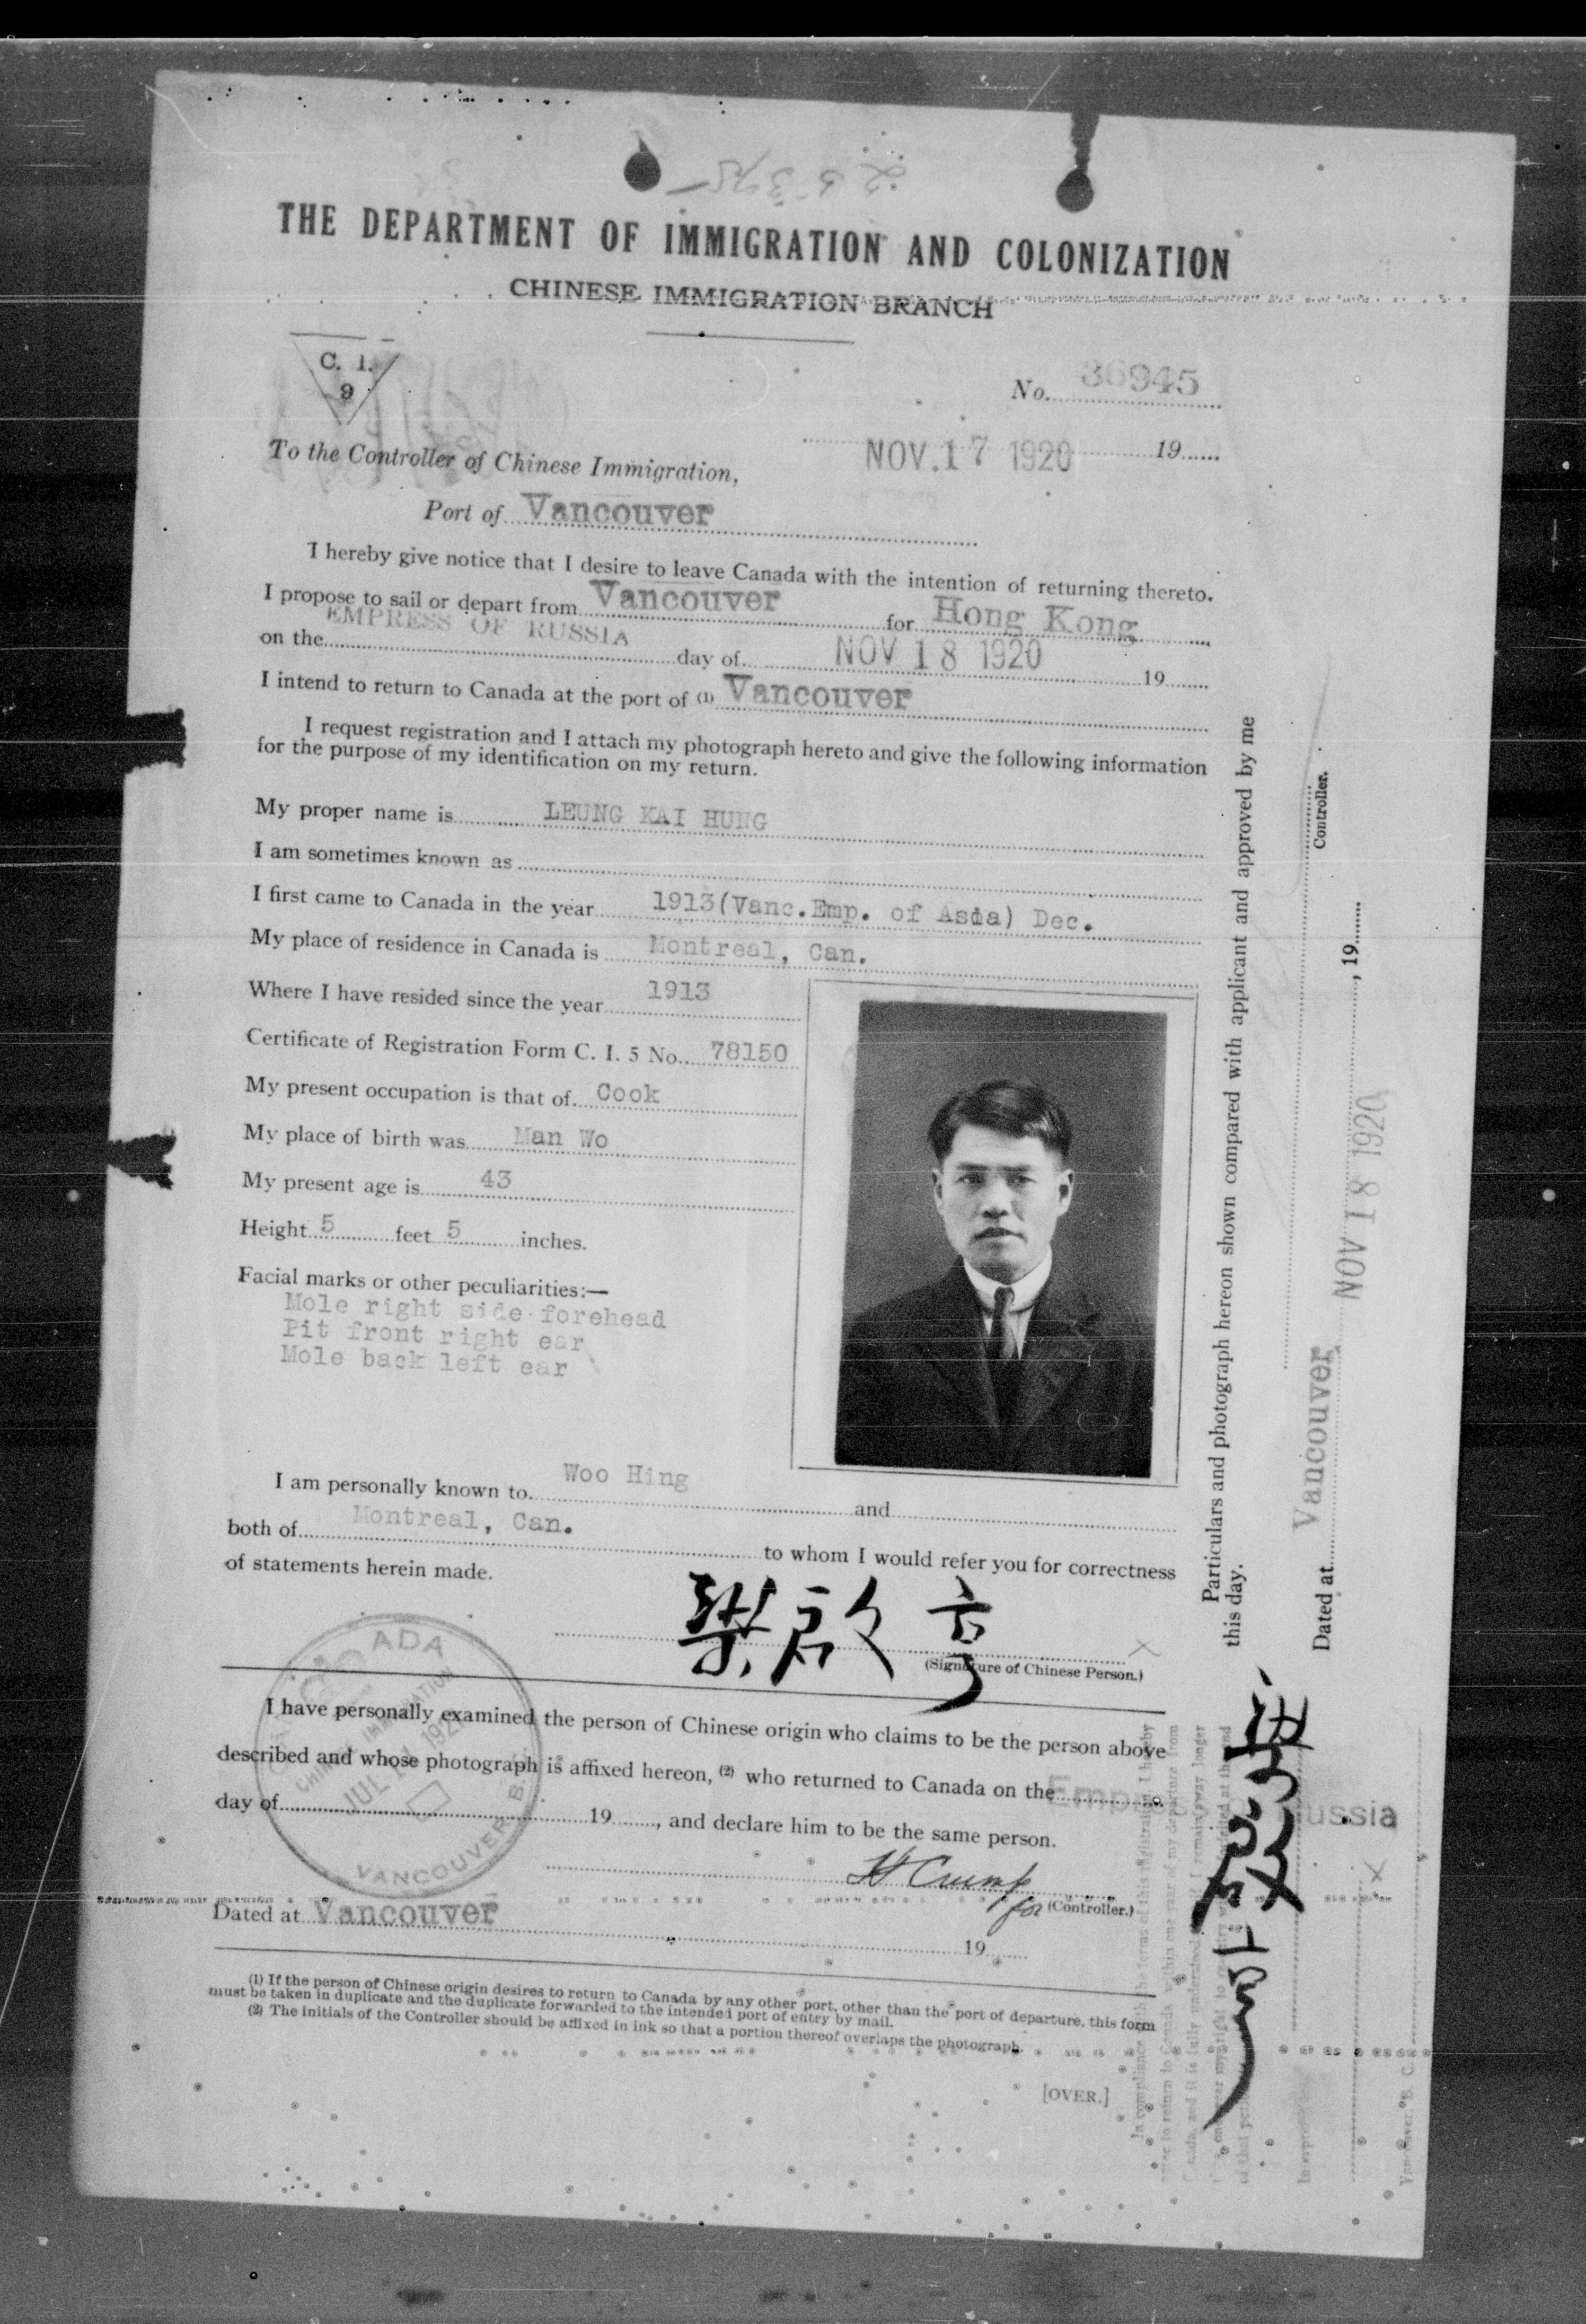 THE DEPARTMENT OF IMMIGRATION AND COLONIZATION
CHINESE IMMIGRATION BRANCH
C. I.
9
No. 36945
NOV. 17 1920 19
To the Controller of Chinese Immigration,
Port of Vancouver
I hereby give notice that I desire to leave Canada with the intention of returning thereto.
I propose to sail or depart from Vancouver for Hong Kong
on the EMPRESS OF RUSSIA day of NOV 18 1920 19
I intend to return to Canada at the port of (1) Vancouver
I request registration and I attach my photograph hereto and give the following information
for the purpose of my identification on my return.
My proper name is LEUNG KAI HUNG
I am sometimes known as
I first came to Canada in the year 1913(Vanc.Emp. of Asia) Dec.
My place of residence in Canada is Montreal, Can.
Where I have resided since the year 1913
Certificate of Registration Form C. I. 5 No. 78150
My present occupation is that of Cook
My place of birth was Man Wo
My present age is 43
Height 5 feet 5 inches.
Facial marks or other peculiarities:—
Mole right side forehead
Pit front right ear
Mole back left ear
I am personally known to Woo Hing and
both of Montreal, Can. to whom I would refer you for correctness
of statements herein made.
梁啟亨
(Signature of Chinese Person.)
I have personally examined the person of Chinese origin who claims to be the person above
described and whose photograph is affixed hereon, (2) who returned to Canada on the
day of 19, and declare him to be the same person.
H Crump
for (Controller.)
Dated at Vancouver
19
(1) If the person of Chinese origin desires to return to Canada by any other port, other than the port of departure, this form
must be taken in duplicate and the duplicate forwarded to the intended port of entry by mail.
(2) The initials of the Controller should be affixed in ink so that a portion thereof overlaps the photograph.
[OVER.]
Particulars and photograph hereon shown compared with applicant and approved by me
this day.
Controller.
Dated at Vancouver NOV 18 1920, 19
CHINESE IMMIGRATION
VANCOUVER B.C.